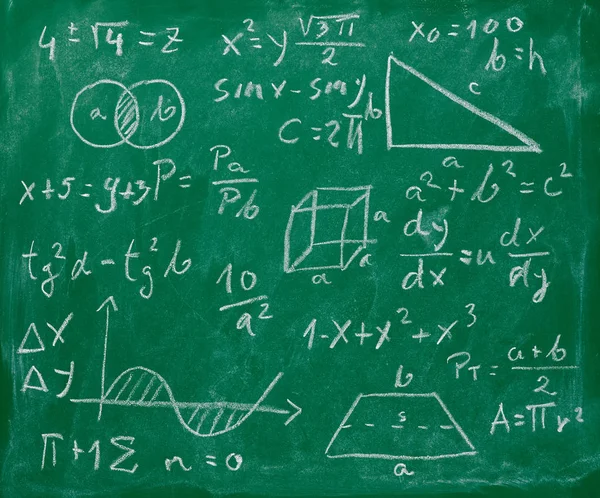 4 ± √4 = z
x² = y √3π / 2
x₀ = 100
b = h
a b
sin x - sin y
C = 2π
b c
a
x + 5 = y + 3
P = Pa / Pb
a² + b² = c²
a
a
a
dy/dx = u dx/dy
tg²α - tg²b
10 / a²
1 - x + x² + x³
Δx
Δy
P_T = a + b / 2
b
s
a
A = πr²
π + 1 Σ n = 0